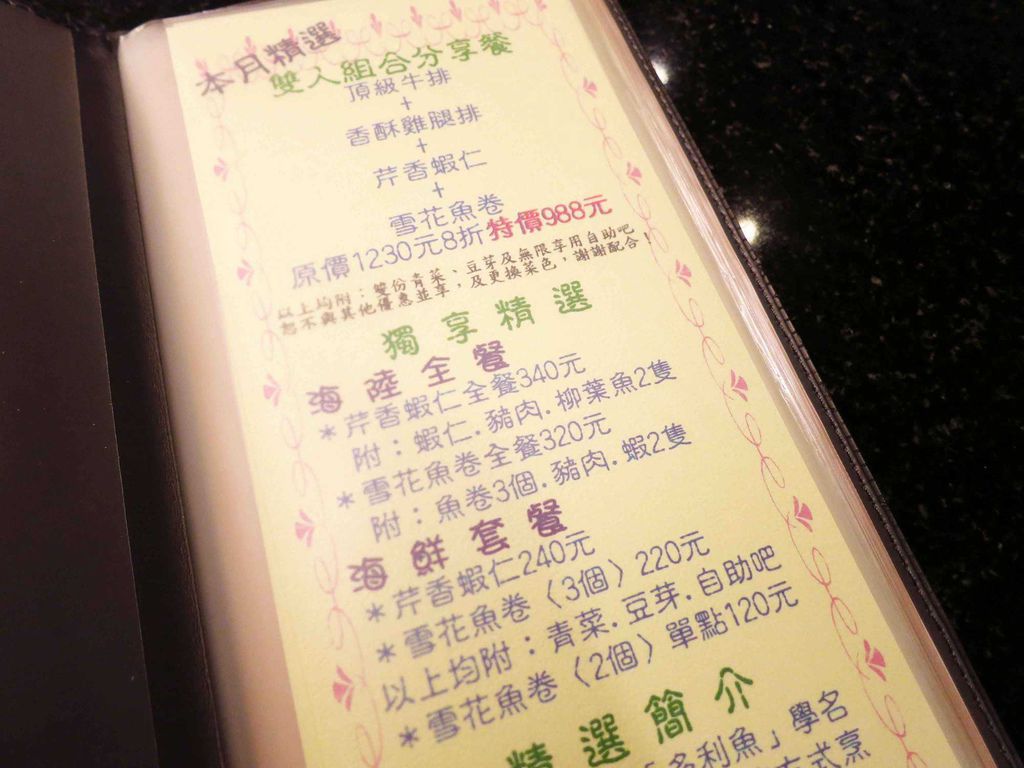 本月精選
雙人組合分享餐
頂級牛排
+
香酥雞腿排
+
芹香蝦仁
+
雪花魚卷
原價1230元8折特價988元
以上均附：雙份青菜、豆芽及無限享用自助吧
恕不與其他優惠並享，及更換菜色，謝謝配合！
獨享精選
海陸全餐
*芹香蝦仁全餐340元
附：蝦仁.豬肉.柳葉魚2隻
*雪花魚卷全餐320元
附：魚卷3個.豬肉.蝦2隻
海鮮套餐
*芹香蝦仁240元
*雪花魚卷〈3個〉220元
以上均附：青菜.豆芽.自助吧
*雪花魚卷〈2個〉單點120元
精選簡介
多利魚」學名
方式烹